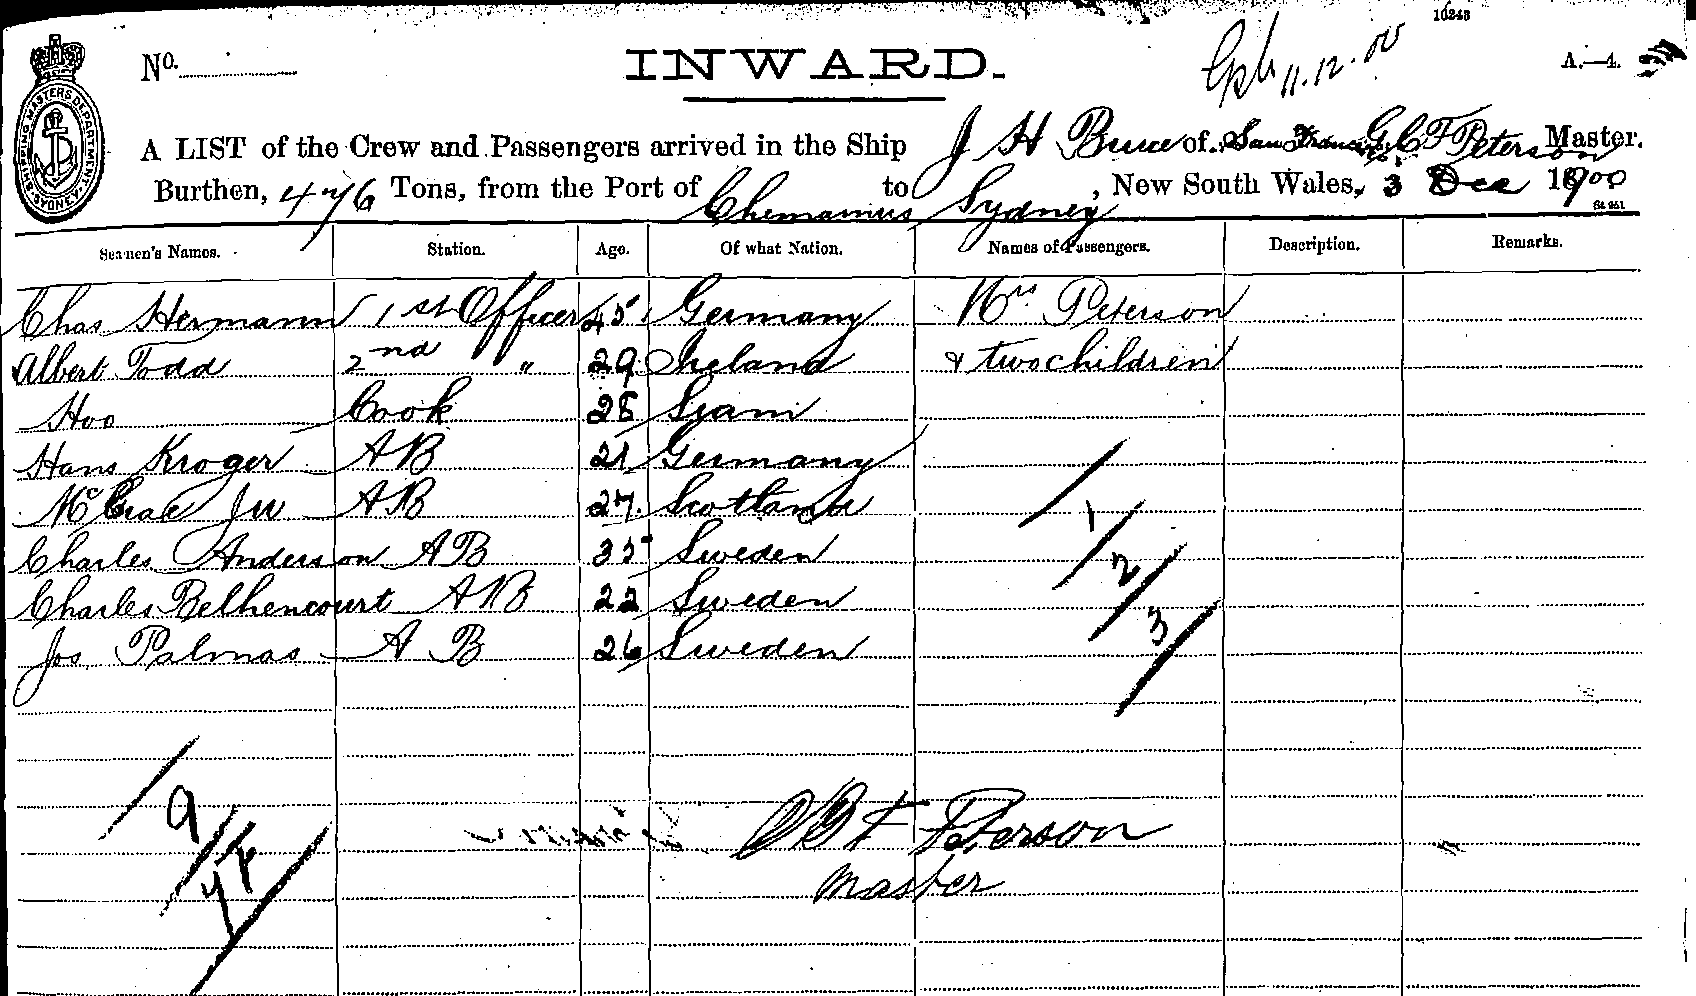 10243
No. INWARD. 11.12.00 A.—4.
SHIPPING MASTERS DEPARTMENT SYDNEY
A LIST of the Crew and Passengers arrived in the Ship J H Bruce of San Francisco G C F Peterson Master.
Burthen, 476 Tons, from the Port of Chemainus to Sydney, New South Wales, 3 Dec 1900
Seamen's Names. Station. Age. Of what Nation. Names of Passengers. Description. Remarks.
Chas Hermann 1st Officer 45 Germany Mrs Peterson
Albert Todd 2nd " 29 Ireland & two children
Hoo Cook 28 Siam
Hans Kroger AB 21 Germany
McCrae Jn AB 27 Scotland
Charles Anderson AB 35 Sweden
Charles Belhencourt AB 22 Sweden
Jos Palmas AB 26 Sweden
1
2
3
9
F Peterson
Master